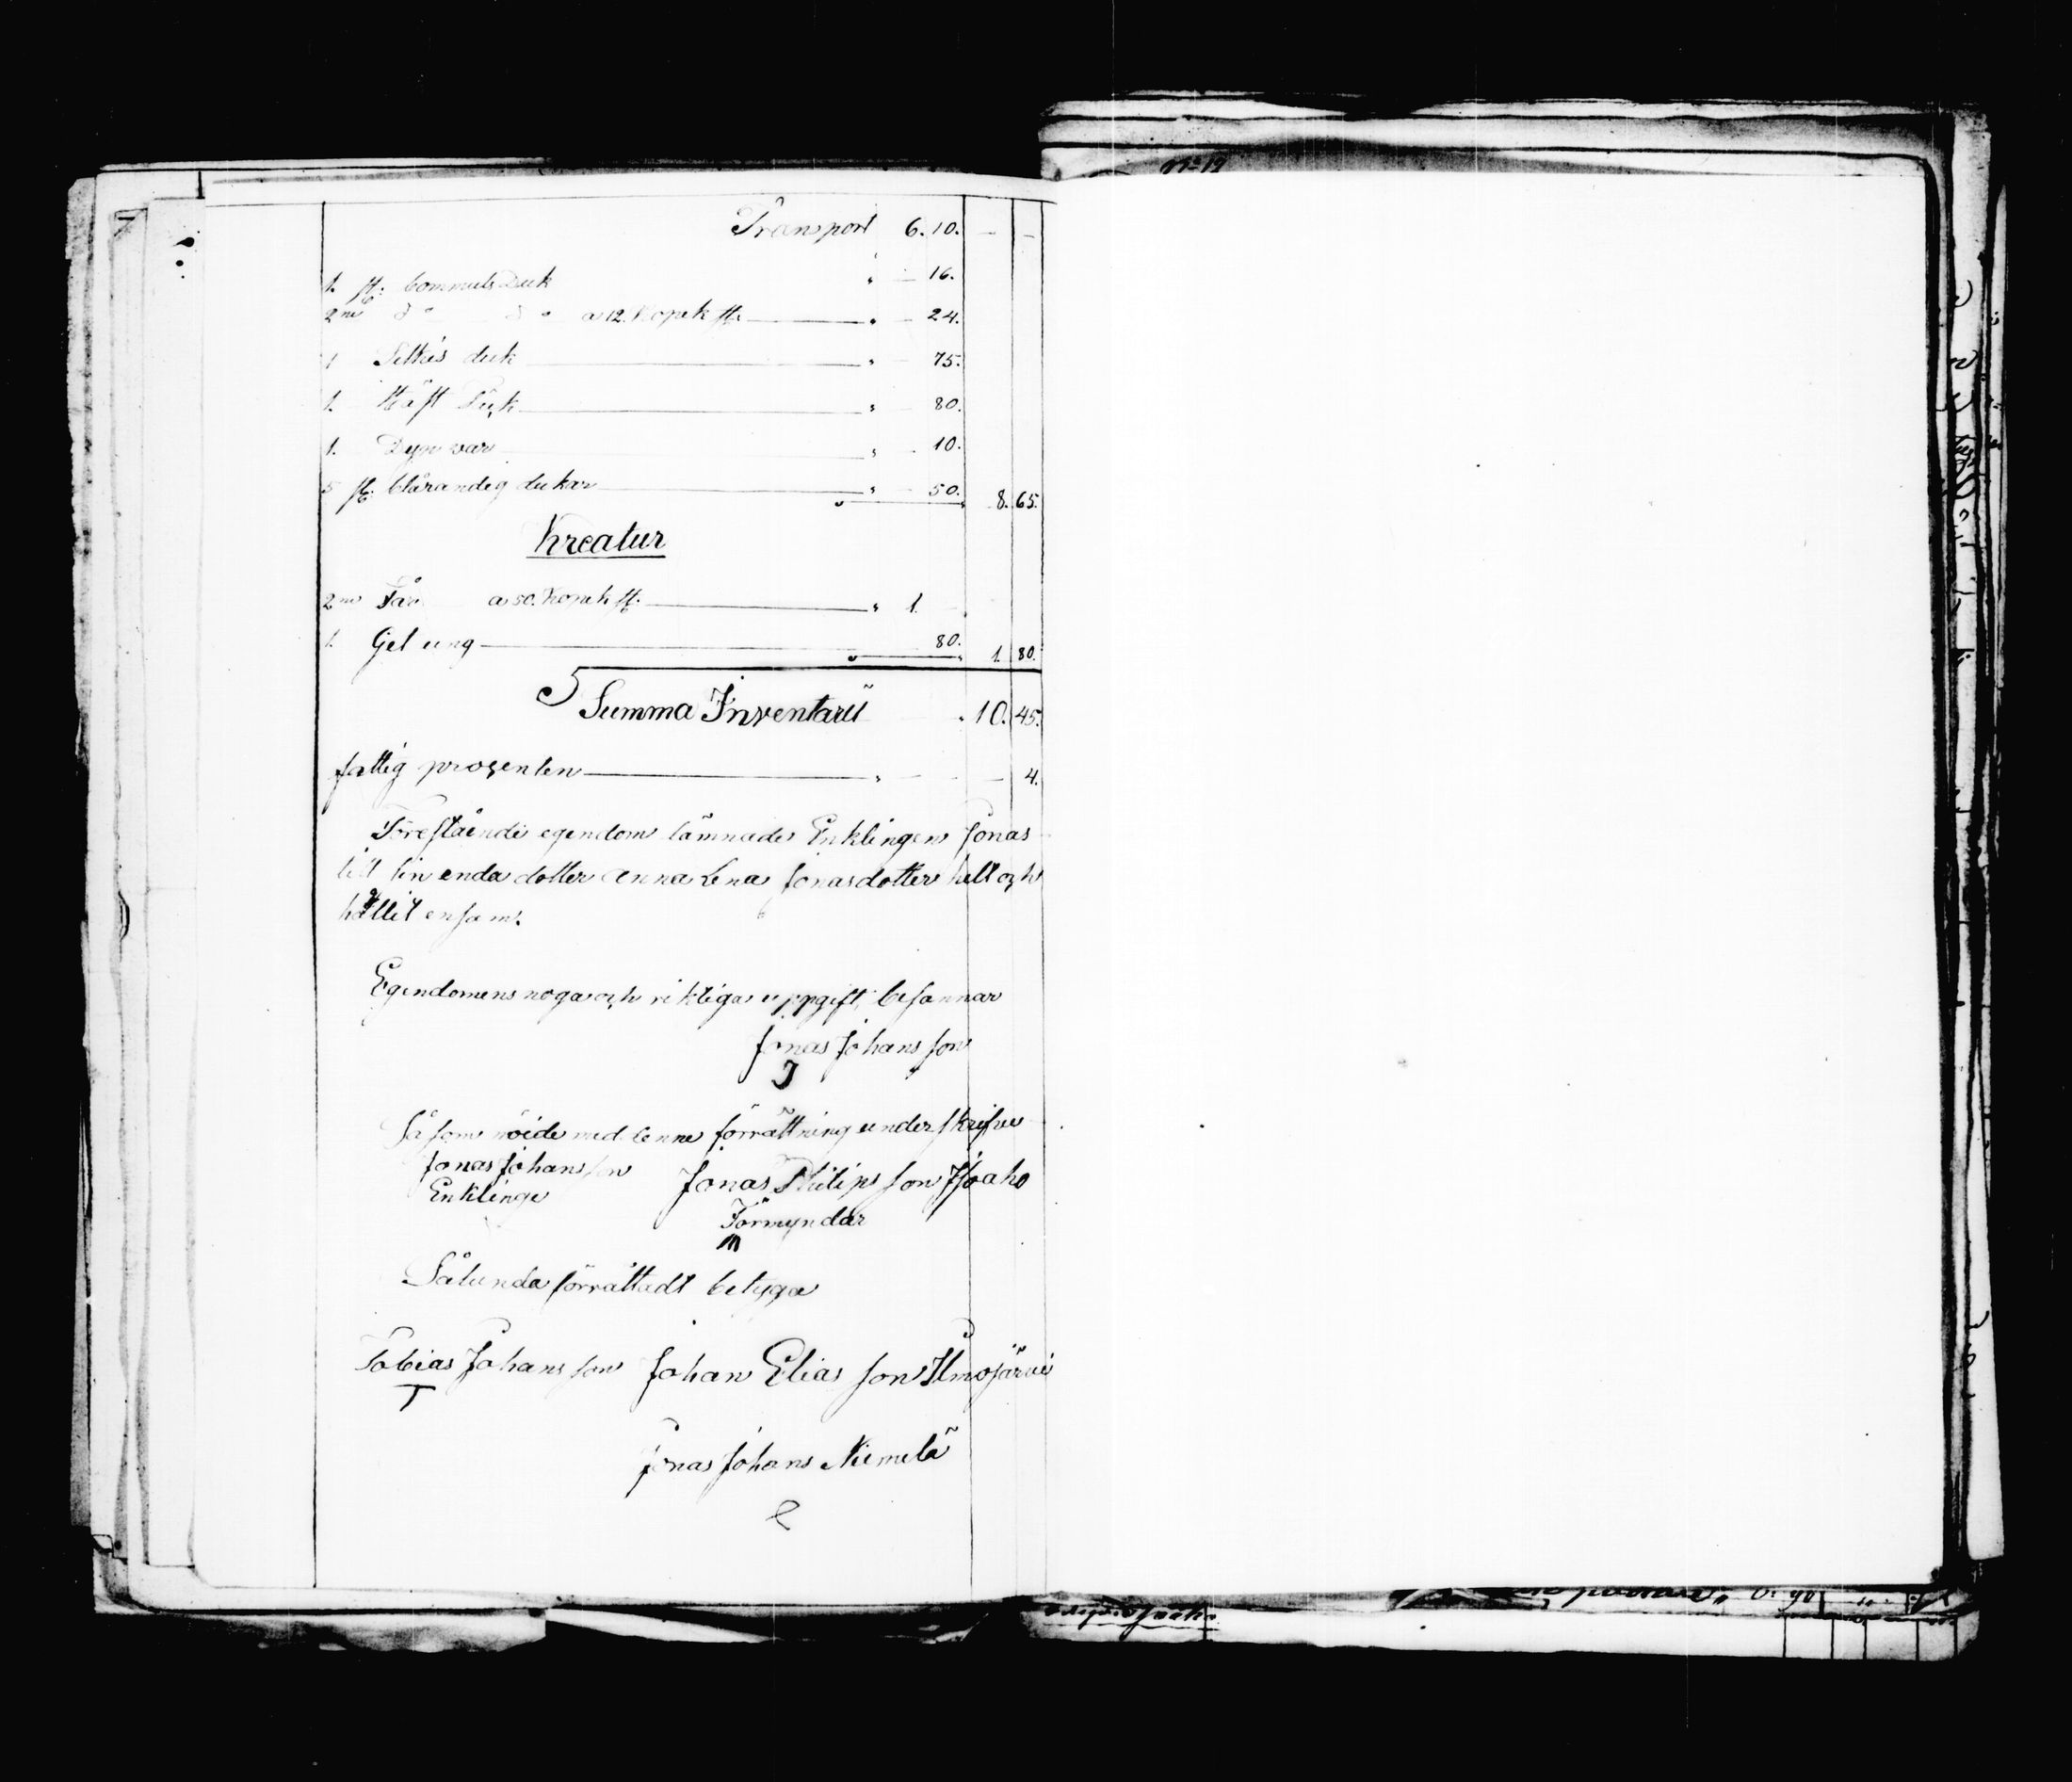 Transport 6. 10. — —
1. st: bommuls Duk " — 16.
2ne D o D o a 12. Kopek st. " — 24.
1 Silkis duk " — 75.
1. Häft Duk " — 80.
1. Dyn var " — 10.
5 st. blårandig dukar " — 50. 8. 65.
Kreatur
2ne Får a 50. Kopek st. " 1. —
1. Get ung 80. 1. 80.
Summa Inventarii " 10. 45.
fattig prozenten " — — 4.
Föreståinde egendom lämnades Enklingen Jonas
till sin enda dotter Anna Lena Jonasdotter helt och
hållit ensam.
Egendomens noga och riktiga uppgift, besannar
Jonas Johansson
J
Såsom nöide med denne förrättning underskrifve
Jonas Johansson Jonas Philipsson Isoaho
Enklinge
Förmyndar
m
Sålunda förrättadt betyga
Tobias Johansson Johan Eliasson Ilmojärvi
T
Jonas Johans Niemelä